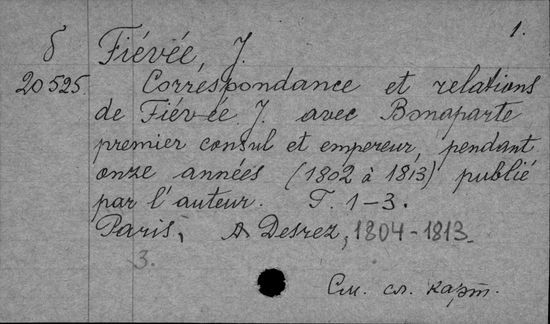 1.
δ Fiévée, J.
20525. Correspondance et relations
de Fiévée J. avec Bonaparte
premier consul et empereur, pendant
onze années (1802 à 1813) publié
par l'auteur. T. 1-3.
Paris, A Desrez, 1804-1813.
3.
См. сл. карт.